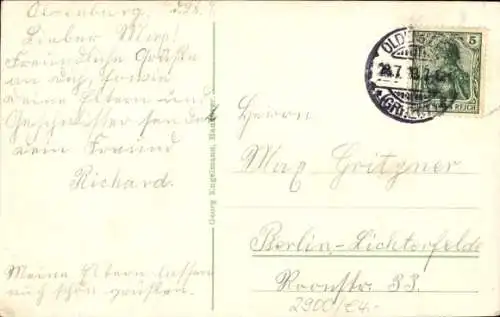 Oldenburg, d. 28.7.
Lieber Max!
Freundliche Grüße
an dich, sowie
deine Eltern und
Geschwister sendet
dein Freund
Richard.
Meine Eltern lassen
auch schön grüßen.
Georg Engelmann,
OLD
28.7.13
(GR.
5
REICH
Herrn
Max Gritzner
Berlin-Lichterfelde
Roonstr. 33.
2900/E4.-